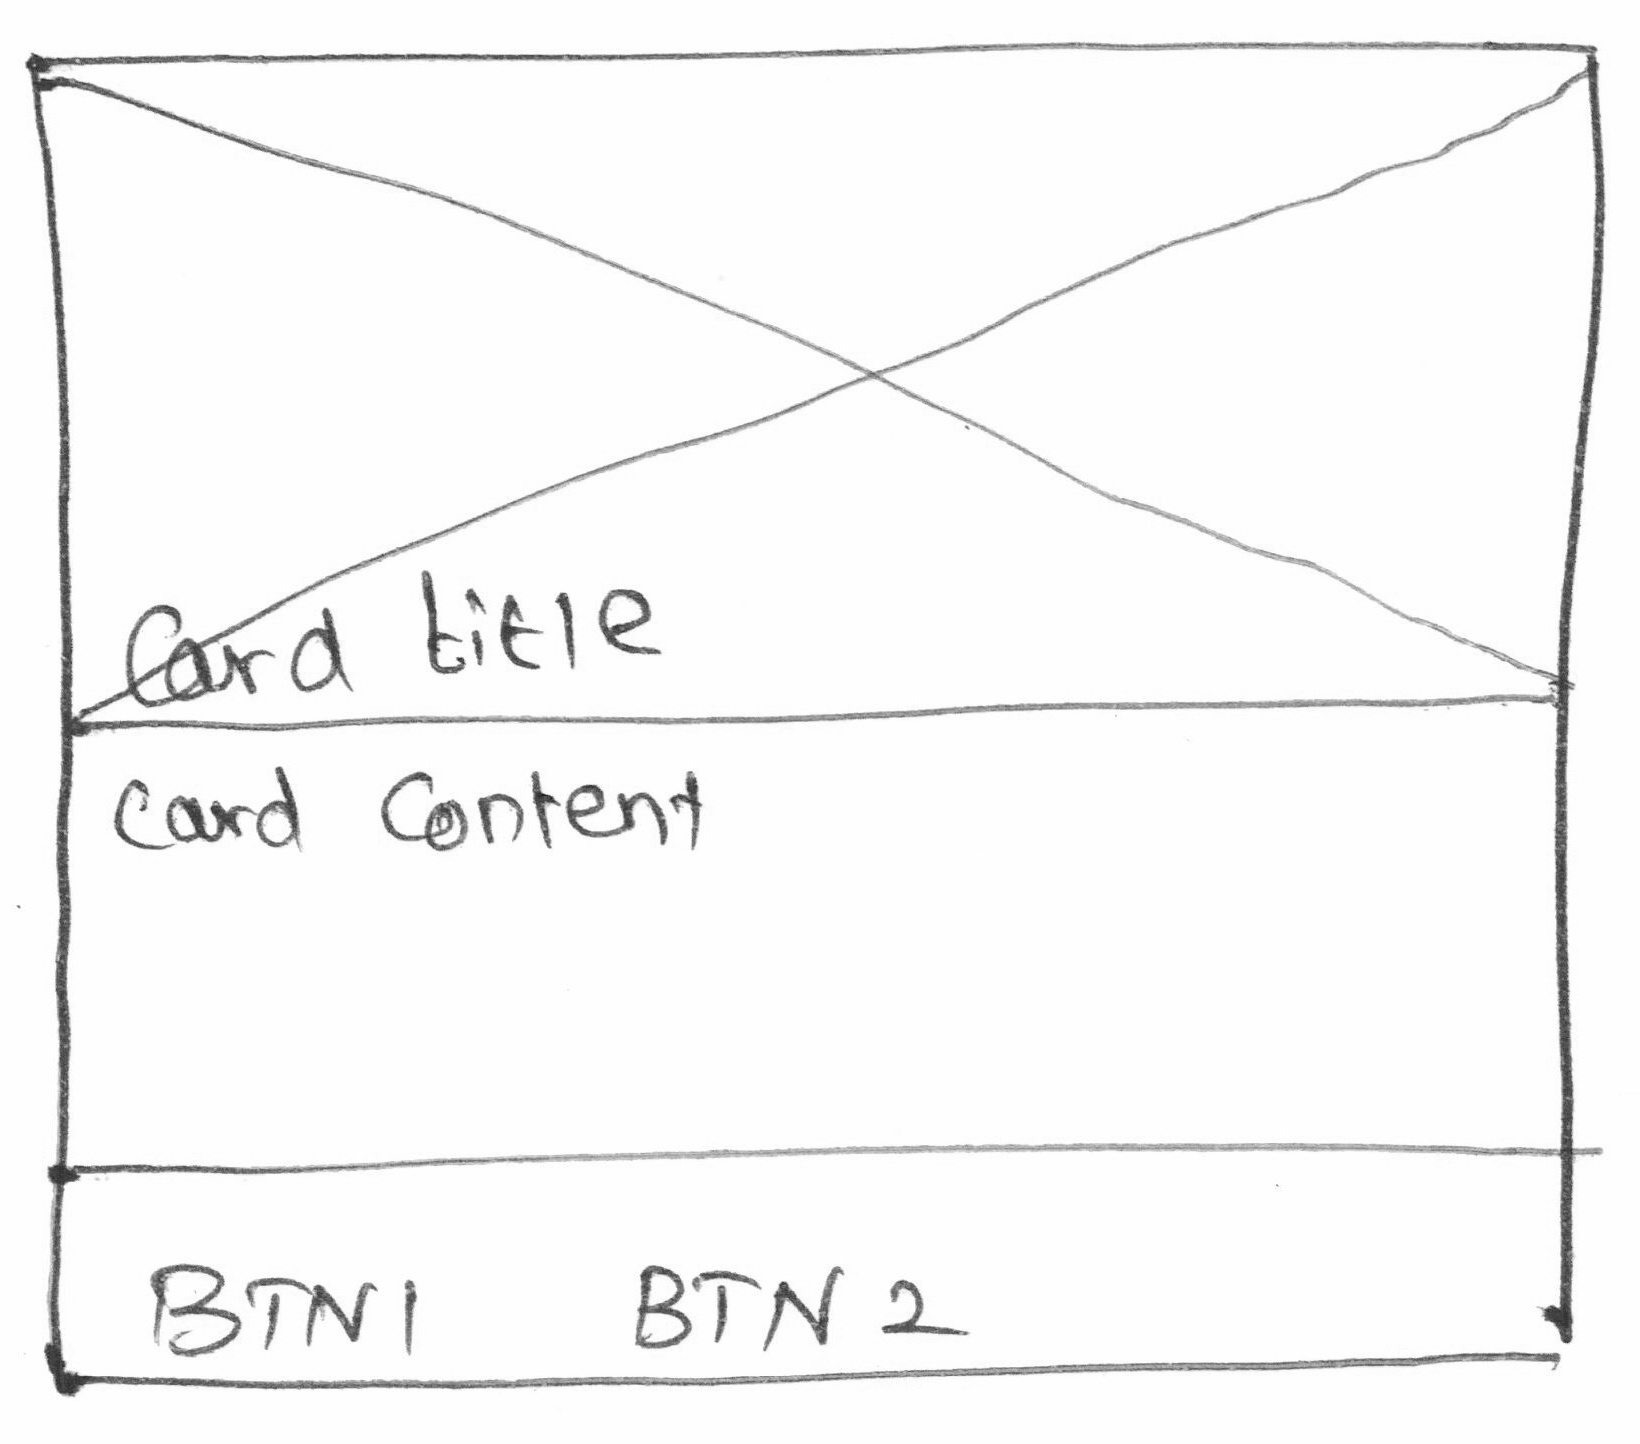 Card title
Card Content
BTN1 BTN 2